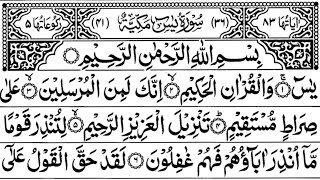 اٰیاتها ٨٣ (٣٦) سُوْرَةُ يٰسٓ مَكِّيَّةٌ (٤١) رکوعاتها ٥
بِسْمِ اللّٰهِ الرَّحْمٰنِ الرَّحِيْمِ
يٰسٓ ۚ﴿١﴾ وَالْقُرْاٰنِ الْحَكِيْمِ ۙ﴿٢﴾ اِنَّكَ لَمِنَ الْمُرْسَلِيْنَ ۙ﴿٣﴾ عَلٰى
صِرَاطٍ مُّسْتَقِيْمٍ ؕ﴿٤﴾ تَنْزِيْلَ الْعَزِيْزِ الرَّحِيْمِ ۙ﴿٥﴾ لِتُنْذِرَ قَوْمًا
مَّاۤ اُنْذِرَ اٰبَآؤُهُمْ فَهُمْ غٰفِلُوْنَ ﴿٦﴾ لَقَدْ حَقَّ الْقَوْلُ عَلٰۤى